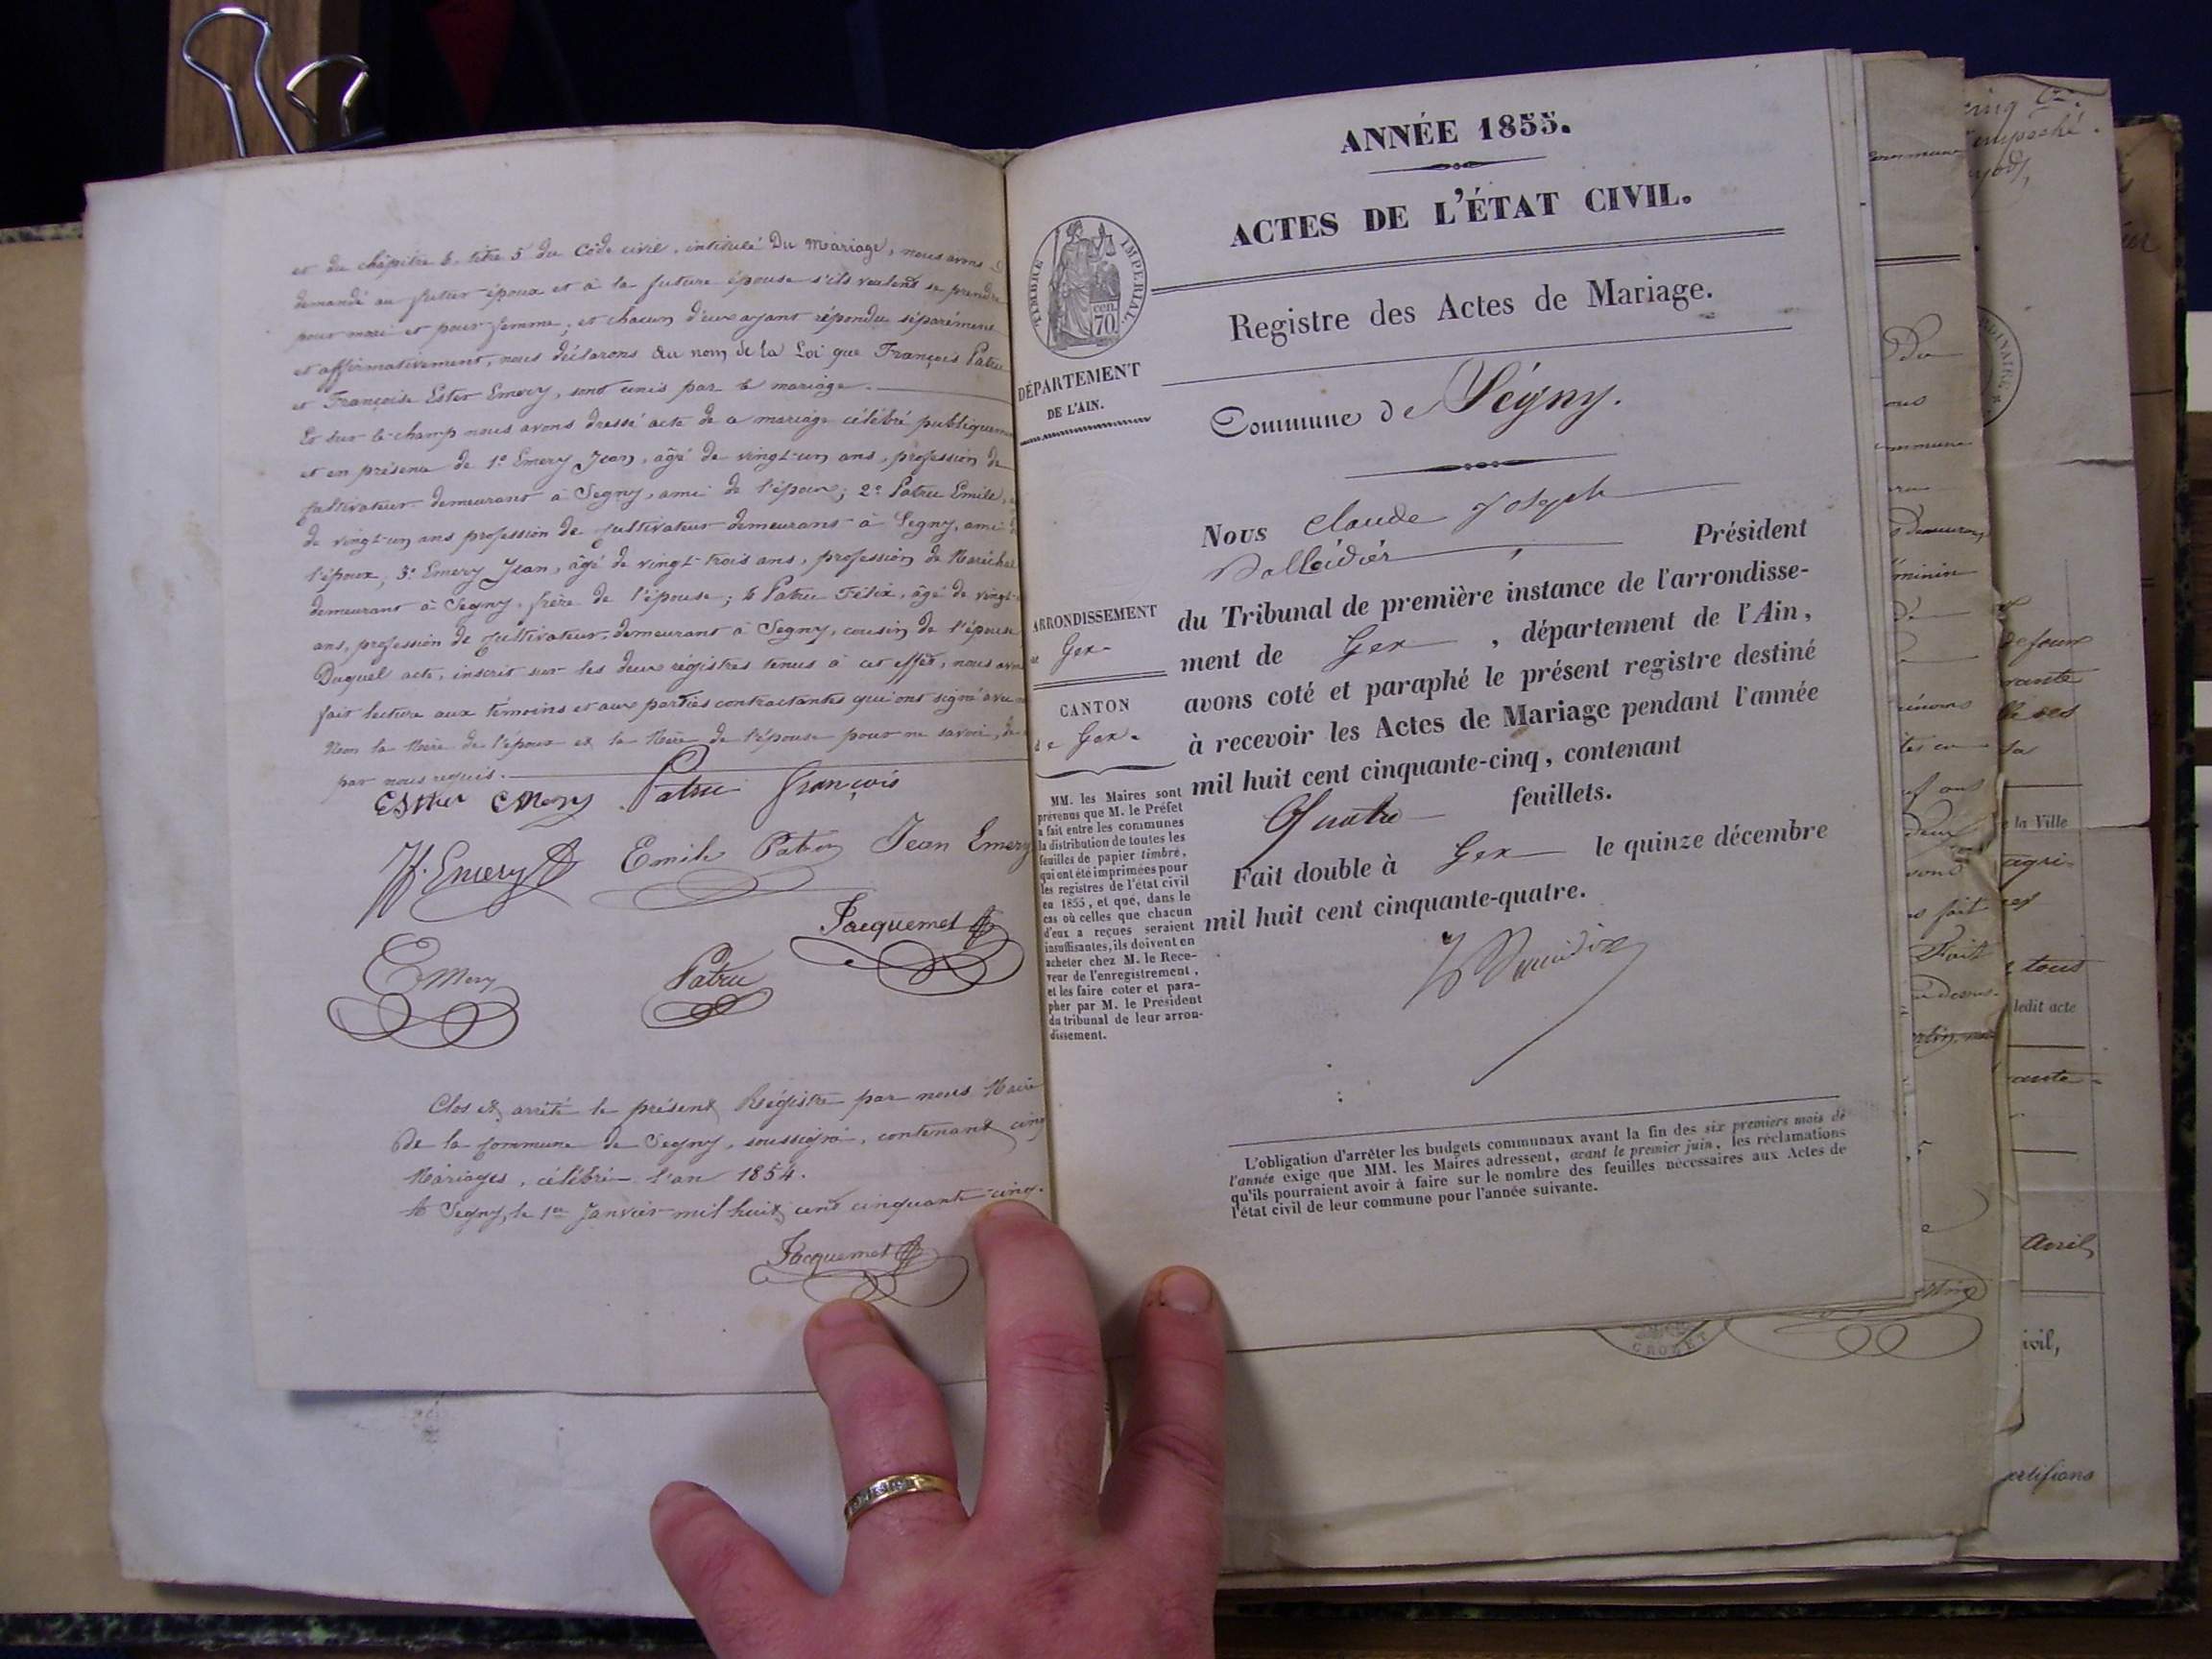 et du chapitre 6. titre 5 du Code civil, intitulé Du Mariage, nous avons
demandé au futur époux et à la future épouse s'ils veulent se prendre
pour mari et pour femme, et chacun d'eux ayant répondu séparément
et affirmativement, nous déclarons au nom de la Loi que François Patru
et Françoise Ester Emery, sont unis par le mariage.
Et sur le champ nous avons dressé acte de ce mariage célébré publiquement
et en présence de 1° Emery Jean, âgé de vingt-un ans, profession de
Cultivateur demeurant à Segny, ami de l'époux; 2° Patru Emile,
de vingt-un ans profession de Cultivateur demeurant à Segny, ami de
l'époux, 3° Emery Jean, âgé de vingt-trois ans, profession de Maréchal
demeurant à Segny, frère de l'épouse; 4 Patru Félix, âgé de vingt-
ans, profession de Cultivateur, demeurant à Segny, cousin de l'épouse
Duquel acte, inscrit sur les deux régistres tenus à cet effet, nous avons
fait lecture aux témoins et aux parties contractantes qui ont signé avec
Non la Mère de l'époux et la Mère de l'épouse pour ne savoir, de
par nous requis.
Esther Emery Patru François
Jf. Emery Emile Patru Jean Emery
Jacquemet
Emery Patru
Clos et arrêté le présent Régistre par nous Maire
de la Commune de Segny, soussigné, contenant cinq
Mariages, célébrés l'an 1854.
A Segny, le 1er Janvier mil huit cent cinquante-cinq.
Jacquemet
ANNÉE 1855.
ACTES DE L'ÉTAT CIVIL.
TIMBRE IMPERIAL
cen.
70
Registre des Actes de Mariage.
DÉPARTEMENT
DE L'AIN.
Commune de Ségny.
Nous Claude Joseph
Président
du Tribunal de première instance de l'arrondisse-
ment de Gex, département de l'Ain,
avons coté et paraphé le présent registre destiné
à recevoir les Actes de Mariage pendant l'année
mil huit cent cinquante-cinq, contenant
Quatre feuillets.
Fait double à Gex le quinze décembre
mil huit cent cinquante-quatre.
ARRONDISSEMENT
de Gex
CANTON
de Gex.
MM. les Maires sont
prévenus que M. le Préfet
a fait entre les communes
la distribution de toutes les
feuilles de papier timbré,
qui ont été imprimées pour
les registres de l'état civil
en 1855, et que, dans le
cas où celles que chacun
d'eux a reçues seraient
insuffisantes, ils doivent en
acheter chez M. le Rece-
veur de l'enregistrement,
et les faire coter et para-
pher par M. le Président
du tribunal de leur arron-
dissement.
L'obligation d'arrêter les budgets communaux avant la fin des six premiers mois de
l'année exige que MM. les Maires adressent, avant le premier juin, les réclamations
qu'ils pourraient avoir à faire sur le nombre des feuilles nécessaires aux Actes de
l'état civil de leur commune pour l'année suivante.
empoché.
la Ville
agri-
tous
ledit acte
Avril,
civil,
certifions